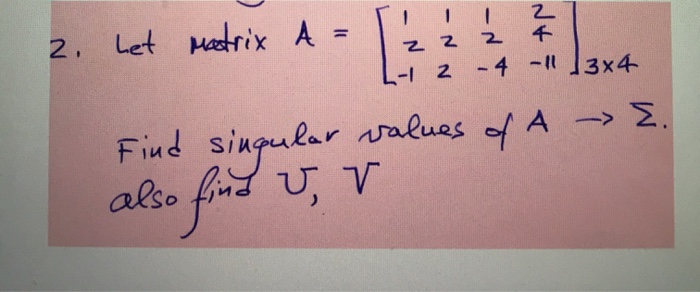 1 1 1 2
2. Let matrix A = [ 2 2 2 4 ]
-1 2 -4 -11 3x4
Find singular values of A → Σ.
also find U, V